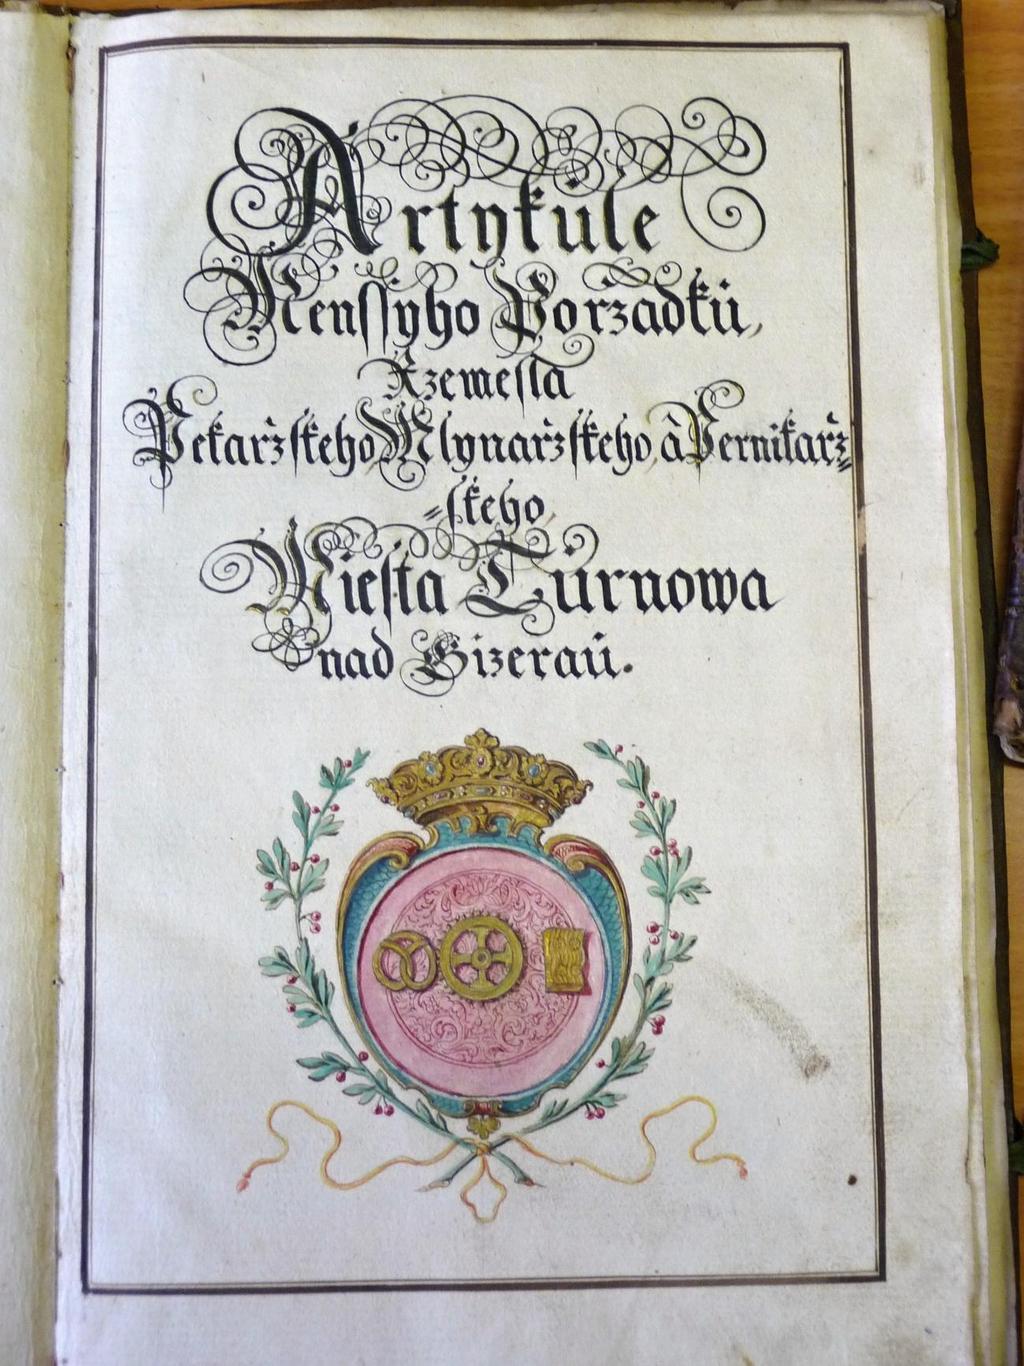 Artykule
Menssyho Poržadků,
Ržemesla
Pekaržskeho, Mlynaržskeho, â Pernikarž=
=skeho,
Miesta Tůrnowa
nad Gizeraů.